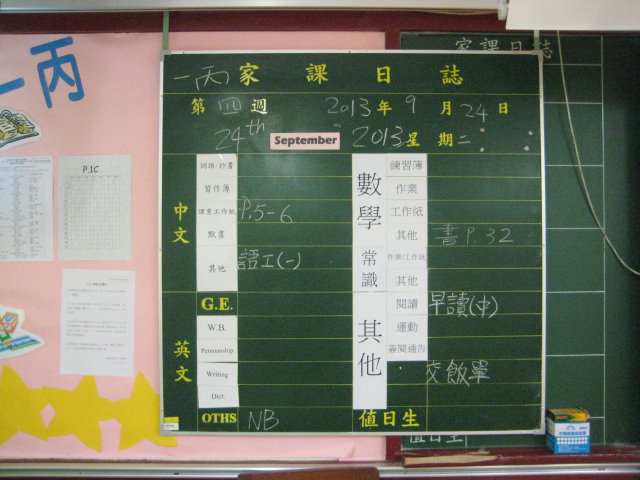 一丙
P.1C
一丙家課日誌
第四週 2013年9月24日
24th September 2013 星期二
中文
詞語/抄書
習作簿
課業工作紙 P.5-6
默書
其他 語工(一)
英文
G.E.
W.B.
Penmanship
Writing
Dict.
OTHS NB
數學
練習簿
作業
工作紙
其他 書P.32
常識
作業/工作紙
其他
其他
閱讀 早讀(中)
運動
簽閱通告
交飯單
值日生
家課日誌
值日生